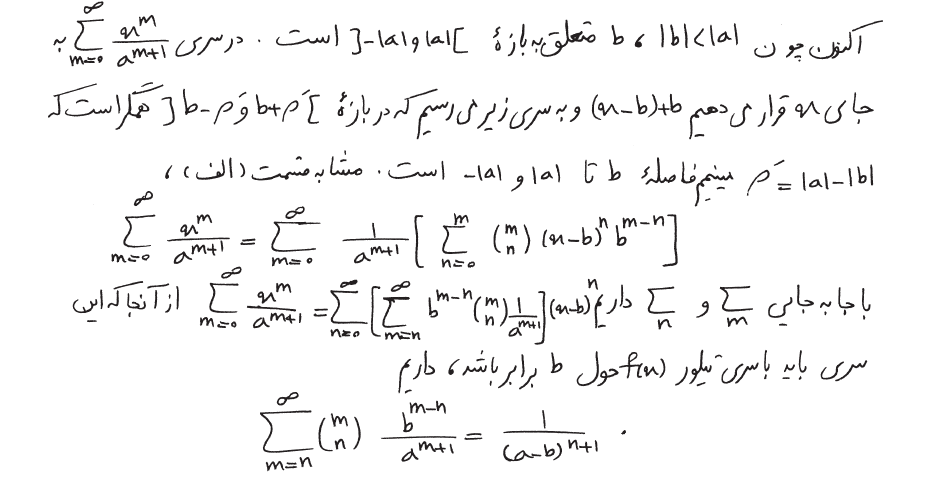 اکنون چون |b|<|a| ، b متعلق به بازهٔ ]-|a| و |a|[ است . در سری \sum_{m=0}^{\infty} \frac{x^m}{a^{m+1}} به
جای x قرار می دهیم (x-b)+b و به سری زیر می رسیم که در بازهٔ ]b-ρ́ و b+ρ́[ همگراست که
ρ́ = |a|-|b| مینیمم فاصلهٔ b تا |a| و -|a| است . مشابه قسمت (الف) ،
\sum_{m=0}^{\infty} \frac{x^m}{a^{m+1}} = \sum_{m=0}^{\infty} \frac{1}{a^{m+1}} \left[ \sum_{n=0}^{m} \binom{m}{n} (x-b)^n b^{m-n} \right]
با جا به جایی \sum_m و \sum_n داریم \sum_{m=0}^{\infty} \frac{x^m}{a^{m+1}} = \sum_{n=0}^{\infty} \left[ \sum_{m=n}^{\infty} b^{m-n} \binom{m}{n} \frac{1}{a^{m+1}} \right] (x-b)^n از آنجا که این
سری باید با سری تیلور f(x) حول b برابر باشد ، داریم
\sum_{m=n}^{\infty} \binom{m}{n} \frac{b^{m-n}}{a^{m+1}} = \frac{1}{(a-b)^{n+1}} .